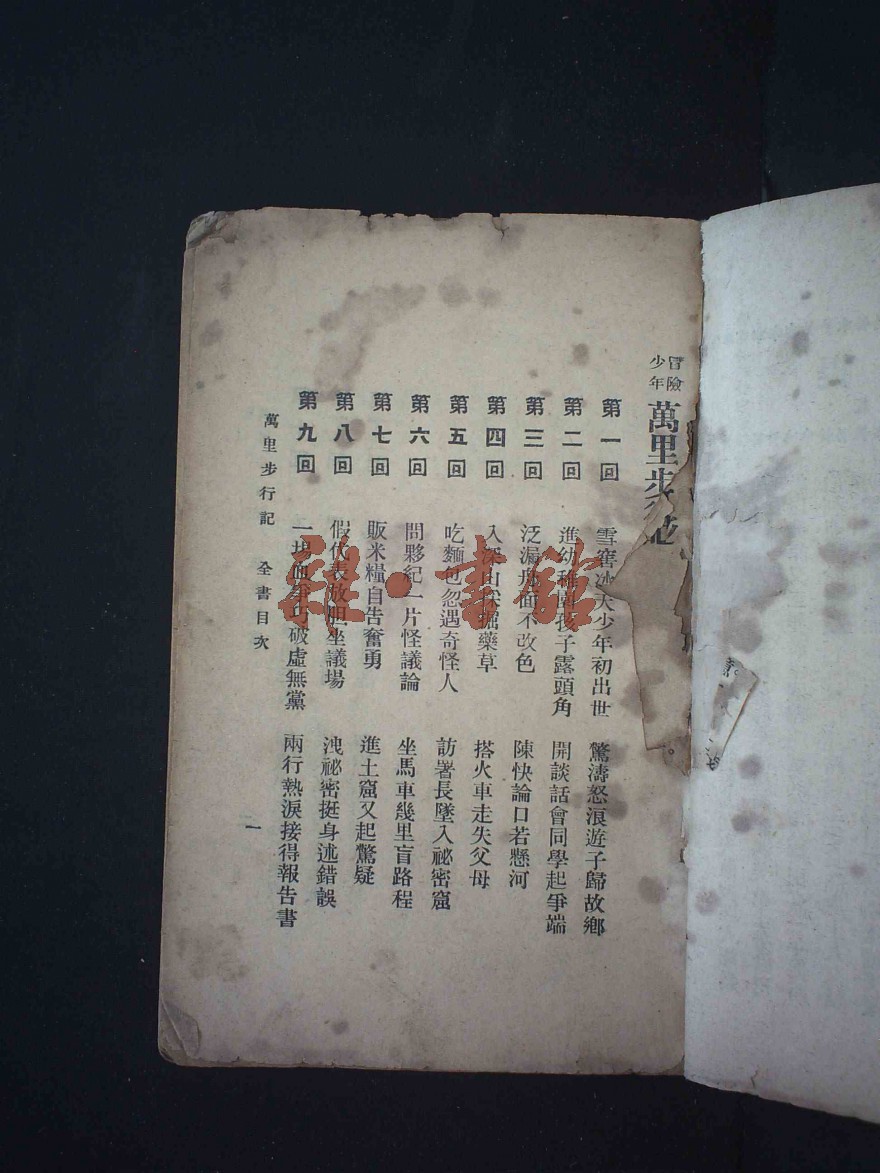 冒險少年 萬里步行記
第一回 雪窖冰天少年初出世 驚濤怒浪遊子歸故鄉
第二回 進幼稚園孩子露頭角 開談話會同學起爭端
第三回 泛漏舟面不改色 陳快論口若懸河
第四回 入深山採掘藥草 搭火車走失父母
第五回 吃麵包忽遇奇怪人 訪署長墜入祕密窟
第六回 問夥紀一片怪議論 坐馬車幾里盲路程
第七回 販米糧自告奮勇 進土窟又起驚疑
第八回 假代表放胆坐議場 洩祕密挺身述錯誤
第九回 一場面爭巧破虛無黨 兩行熱淚接得報告書
萬里步行記 全書目次 一
雜·書館